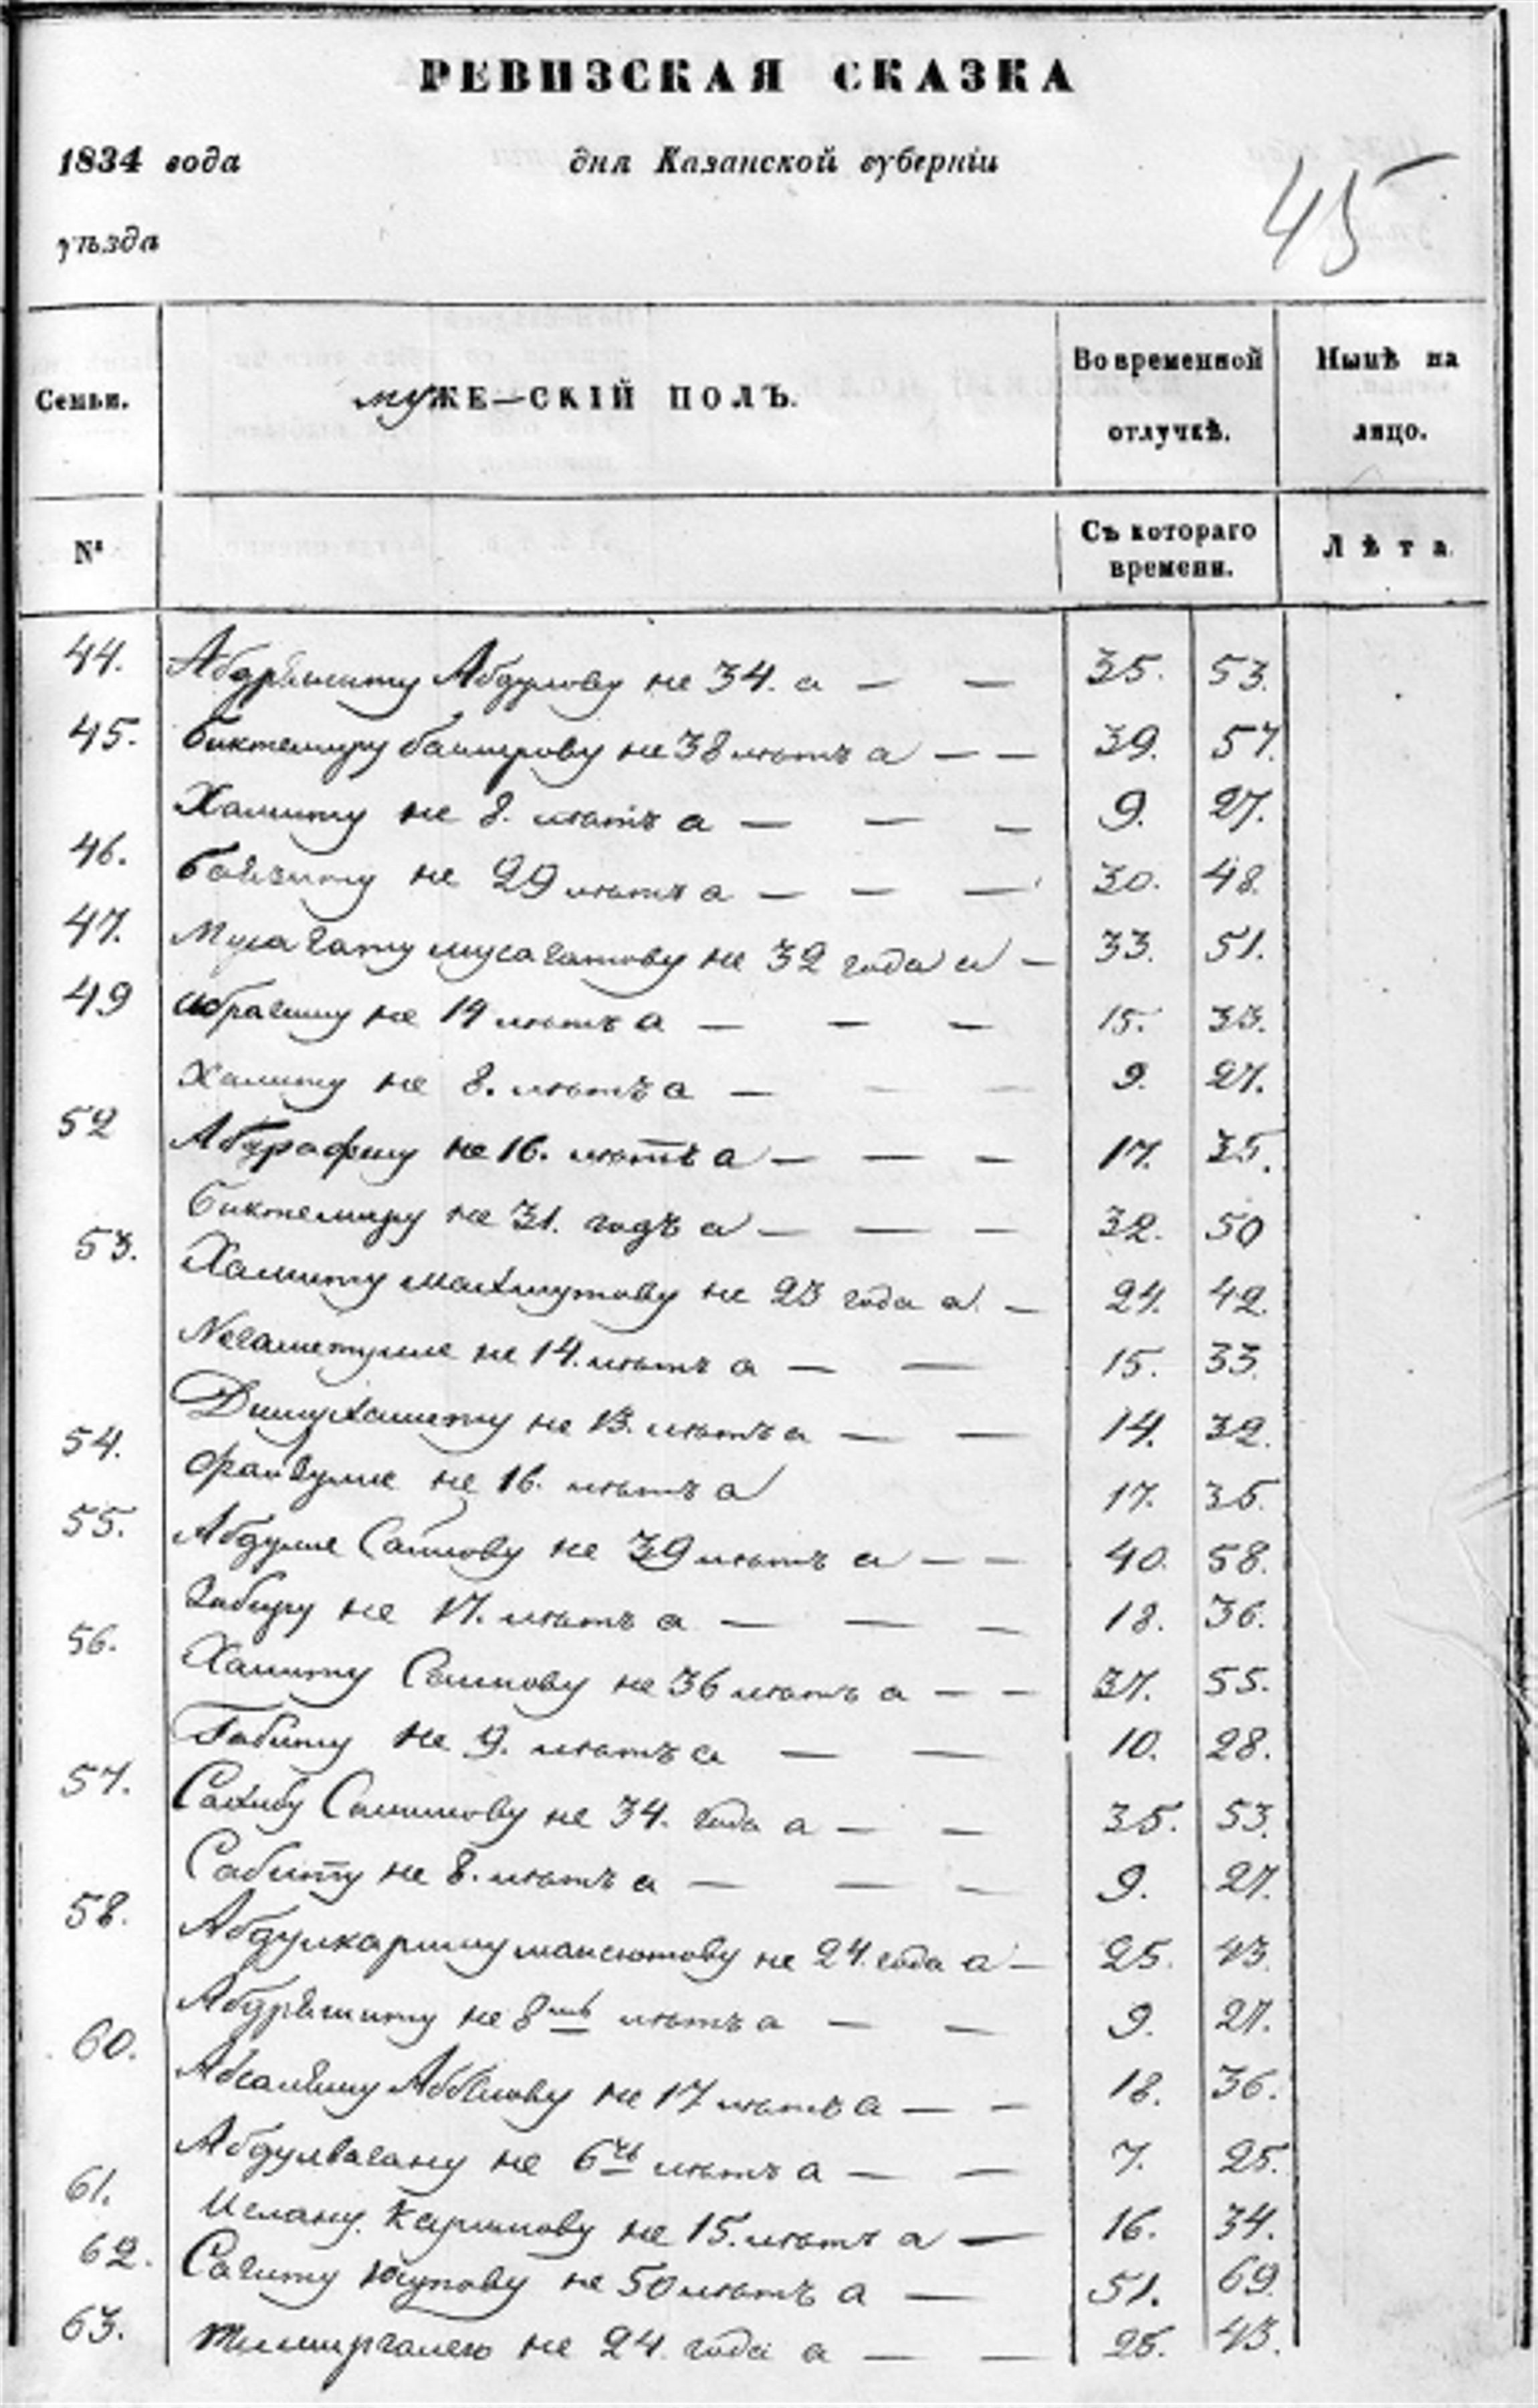 РЕВИЗСКАЯ СКАЗКА
1834 года дня Казанской губерніи
45
уѣзда
Семьи. МУЖЕ—СКІЙ ПОЛЪ. Во временной отлучкѣ. Нынѣ на лицо.
№ Съ котораго времени. Лѣта
44. Абдряшиту Абдулову не 34. а — — 35. 53.
45. Биктемиру баширову не 38 лѣтъ а — — 39. 57.
Хамиту не 8. лѣтъ а — — — 9. 27.
46. Баязиту не 29 лѣтъ а — — — 30. 48.
47. Мусагату мусагатову не 32 года а — 33. 51.
49 ибрагиму не 14 лѣтъ а — — — 15. 33.
Халиту не 8. лѣтъ а — — — 9. 27.
52 Абдрафику не 16. лѣтъ а — — — 17. 35.
Биктемиру не 31. годъ а — — — 32. 50
53. Хамиту махмутову не 23 года а. — 24. 42.
Негаметулле не 14. лѣтъ а — — 15. 33.
Динмухамету не 13. лѣтъ а — — 14. 32.
54. Файзулле не 16. лѣтъ а 17. 35.
55. Абдулле Саитову не 39 лѣтъ а — — 40. 58.
Забиру не 17. лѣтъ а — — — 18. 36.
56. Хамиту Саитову не 36 лѣтъ а — — 37. 55.
Габиту не 9. лѣтъ а — — 10. 28.
57. Сахибу Салимову не 34. года а — — 35. 53.
Сабиту не 8. лѣтъ а — — — 9. 27.
58. Абдулкариму мансютову не 24. года а — 25. 43.
Абдряшиту не 8мь лѣтъ а — — 9. 27.
60. Абсаляму не 17 лѣтъ а — — 18. 36.
Абдулвагапу не 6ть лѣтъ а — — 7. 25.
61. Каримову не 15. лѣтъ а — 16. 34.
62. Сагиту Юсупову не 50 лѣтъ а — 51. 69.
63. Тимиргалею не 24. года а — — 25. 43.